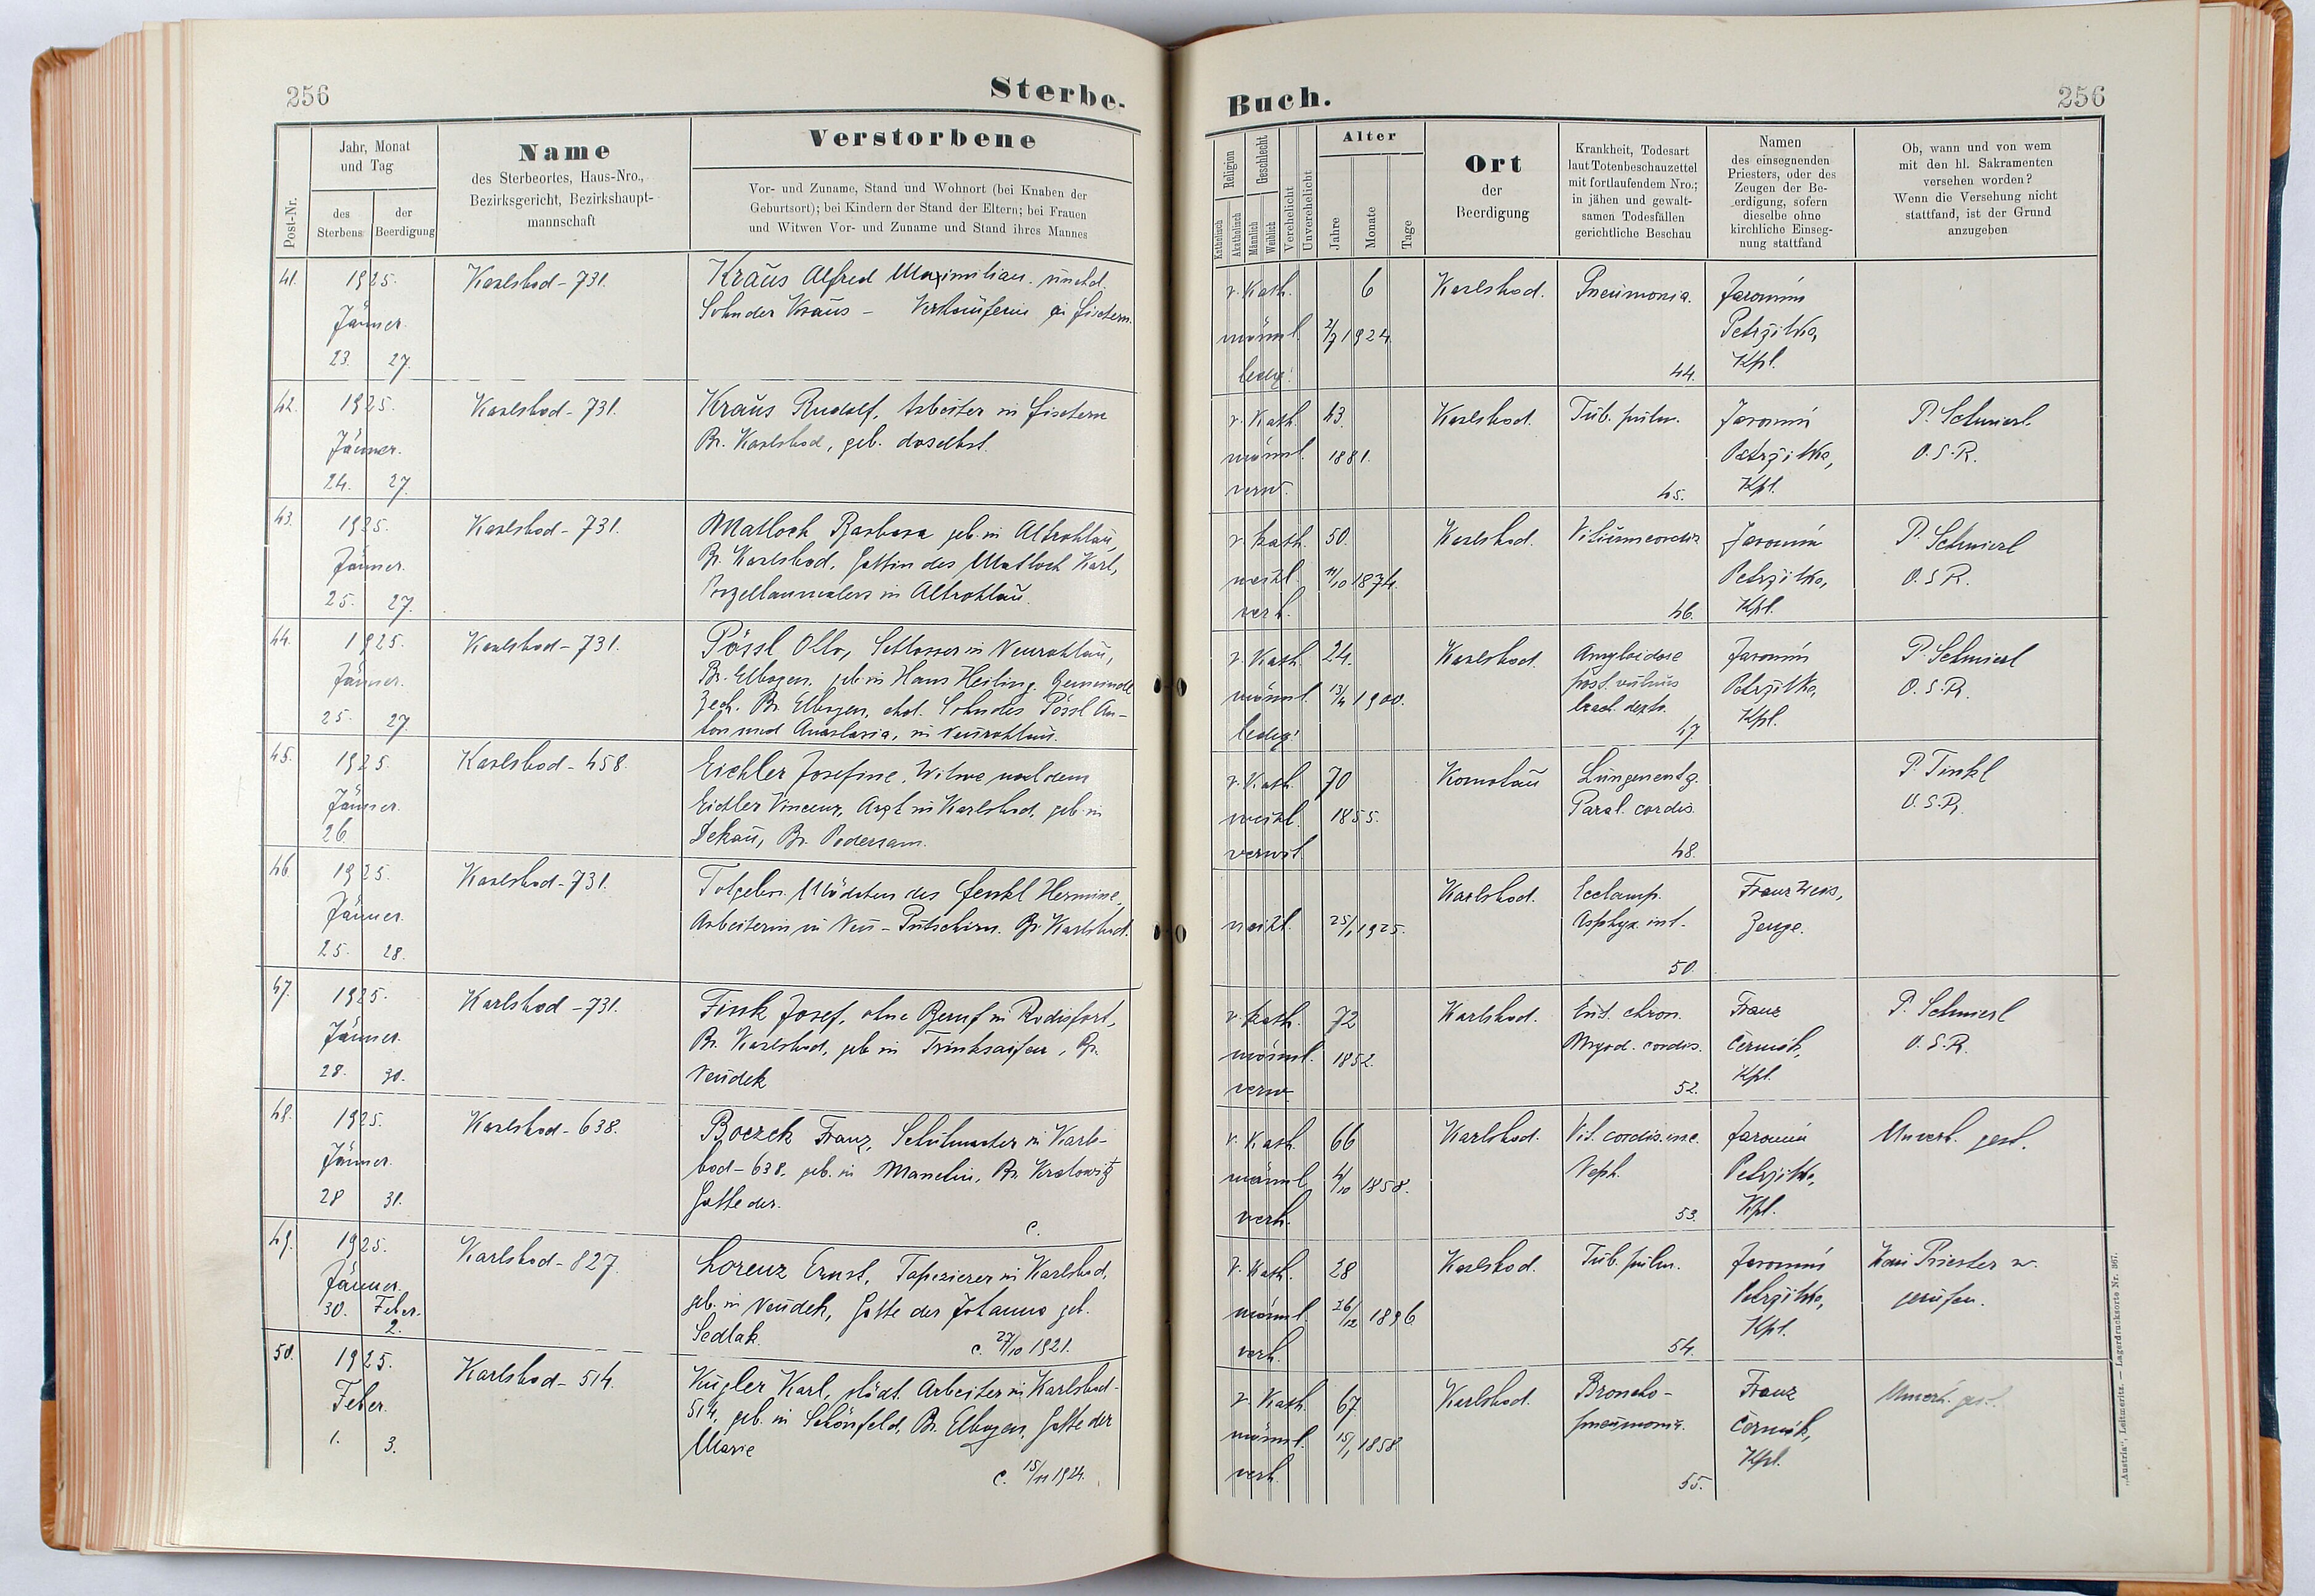 256
Sterbe-
Jahr, Monat
und Tag
Name
Verstorbene
des Sterbeortes, Haus-Nro.,
Bezirksgericht, Bezirkshaupt-
mannschaft
Post-Nr.
des
Sterbens
der
Beerdigung
Vor- und Zuname, Stand und Wohnort (bei Knaben der
Geburtsort); bei Kindern der Stand der Eltern; bei Frauen
und Witwen Vor- und Zuname und Stand ihres Mannes
41.
1925.
Jänner.
23. 27.
Karlsbad - 731.
Kraus Alfred Maximilian, unehel.
Sohn der Kraus - Verkäuferin in Fischern.
42.
1925.
Jänner.
24. 27.
Karlsbad - 731.
Kraus Rudolf, Arbeiter in Fischern
Bz. Karlsbad, geb. daselbst.
43.
1925.
Jänner.
25. 27.
Karlsbad - 731.
Matloch Barbara geb. in Altrohlau,
Bz. Karlsbad, Gattin des Matloch Karl,
Porzellanmalers in Altrohlau.
44.
1925.
Jänner.
25. 27.
Karlsbad - 731.
Pössl Otto, Schlosser in Neurohlau,
Bz. Elbogen, geb. in Hans Heiling, Gemeinde
Zech, Bz. Elbogen, ehel. Sohn des Pössl An-
ton und Anastasia, in Neurohlau.
45.
1925.
Jänner.
26.
Karlsbad - 458.
Eichler Josefine, Witwe nach dem
Eichler Vincenz, Arzt in Karlsbad, geb. in
Dekau, Bz. Podersam.
46.
1925.
Jänner.
25. 28.
Karlsbad - 731.
Totgebor. Mädchen des Fenkl Hermine,
Arbeiterin in Neu - Putschirn. Bz. Karlsbad.
47.
1925.
Jänner.
28. 30.
Karlsbad - 731.
Fink Josef, ohne Beruf in Rodisfort,
Bz. Karlsbad, geb. in Trinksaifen, Bz.
Neudek
48.
1925.
Jänner.
28 31.
Karlsbad - 638.
Boczek Franz, Schuhmacher in Karls-
bad - 638. geb. in Manetin, Bz. Kralowitz
Gatte der.
C.
49.
1925.
Jänner.
30. Feber.
2.
Karlsbad - 827.
Lorenz Ernst, Tapezierer in Karlsbad,
geb. in Neudek, Gatte der Johanna geb.
Sedlak.
C. 27/10 1921.
50.
1925.
Feber.
1. 3.
Karlsbad - 514.
Kugler Karl, städt. Arbeiter in Karlsbad -
514, geb. in Schönfeld, Bz. Elbogen, Gatte der
Marie
C. 15/11 1924.
Buch.
256
Religion
Katholisch
Akatholisch
Geschlecht
Männlich
Weiblich
Verehelicht
Unverehelicht
Alter
Jahre
Monate
Tage
Ort
der
Beerdigung
Krankheit, Todesart
laut Totenbeschauzettel
mit fortlaufendem Nro.;
in jähen und gewalt-
samen Todesfällen
gerichtliche Beschau
Namen
des einsegnenden
Priesters, oder des
Zeugen der Be-
erdigung, sofern
dieselbe ohne
kirchliche Einseg-
nung stattfand
Ob, wann und von wem
mit den hl. Sakramenten
versehen worden?
Wenn die Versehung nicht
stattfand, ist der Grund
anzugeben
r. Kath. 6
männl. 2/7 1924.
ledig.
Karlsbad.
Pneumonia.
44.
Jaromír
Petrzilka,
Kpl.
r. Kath. 43.
männl. 1881.
verw.
Karlsbad.
Tub. pulm.
45.
Jaromír
Petrzilka,
Kpl.
P. Schmierl
O. S. R.
r. Kath. 50.
weibl. 11/10 1874.
verh.
Karlsbad.
Vitium cordis
46.
Jaromír
Petrzilka,
Kpl.
P. Schmierl
O. S. R.
r. Kath. 24.
männl. 13/4 1900.
ledig.
Karlsbad.
Amyloidose
post vulnus
brach. dextr.
47
Jaromír
Petrzilka,
Kpl.
P. Schmierl
O. S. R.
r. Kath. 70
weibl. 1855.
verwit.
Komotau
Lungenentz.
Paral. cordis.
48.
P. Tinkl
O. S. R.
weibl. 25/1 1925.
Karlsbad.
Ecclamp.
Asphyx. int.
50.
Franz Weis,
Zeuge.
r. Kath. 72
männl. 1852.
verw.
Karlsbad.
Ent. chron.
Myod. cordis.
52.
Franz
Čermák,
Kpl.
P. Schmierl
O. S. R.
r. Kath. 66
männl. 4/10 1858.
verh.
Karlsbad.
Vit. cordis. inc.
Neph.
53.
Jaromír
Petrzilka,
Kpl.
Unverh. gest.
r. Kath. 28
männl. 26/12 1896
verh.
Karlsbad.
Tub. pulm.
54.
Jaromír
Petrzilka,
Kpl.
Kein Priester w.
gerufen.
r. Kath. 67
männl. 15/1 1858
verh.
Karlsbad.
Broncho-
pneumonia.
55.
Franz
Čermák,
Kpl.
Unverh. gest.
„Austria", Leitmeritz. — Lagerdrucksorte Nr. 367.